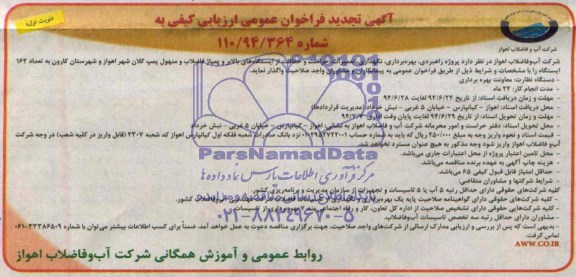 نوبت اول
آگهی تجدید فراخوان عمومی ارزیابی کیفی به
شماره ۱۱۰/۹۴/۳۶۴
شرکت آب و فاضلاب اهواز
شرکت آب‌وفاضلاب اهواز در نظر دارد پروژه راهبردی، بهره‌برداری، نگهداری، تعمیرات، حراست و حفاظت از ایستگاه‌های بالابر و پمپاژ فاضلاب و منهول پمپ کلان شهر اهواز و شهرستان کارون به تعداد ۱۶۲
ایستگاه را با مشخصات و شرایط ذیل از طریق فراخوان عمومی به پیمانکاران و مشاوران واجد صلاحیت واگذار نماید.
- دستگاه نظارت: معاونت بهره برداری
- مدت انجام کار: ۲۴ ماه
- مهلت و زمان دریافت اسناد: از تاریخ ۹۴/۶/۲۴ لغایت ۹۴/۶/۲۸
- محل دریافت اسناد: اهواز - کیانپارس - خیابان ۵ غربی - نبش خرداد (مدیریت قراردادها)
- مهلت و زمان تحویل اسناد: از تاریخ ۹۴/۶/۲۹ لغایت پایان وقت اداری ۹۴/۷/۷
- محل تحویل اسناد: دفتر حراست و امور محرمانه شرکت آب و فاضلاب اهواز به نشانی: اهواز - کیانپارس - خیابان ۵ غربی - نبش خرداد
- قیمت اسناد و نحوه واریز وجه به مبلغ ۲۵۰/۰۰۰ ریال که باید به شماره حساب نزد بانک صادرات شعبه فلکه اول کیانپارس اهواز کد شعبه ۲۳۰۷ (قابل واریز در کلیه شعب) در وجه شرکت
آب‌و فاضلاب اهواز واریز شود وجه مذکور به هیچ عنوان مسترد نخواهد شد.
- محل تامین اعتبار پروژه از محل اعتبارات جاری می‌باشد.
- هزینه چاپ آگهی به عهده برنده مناقصه می‌باشد.
- حداقل امتیاز قابل قبول کیفی ۶۵ می‌باشد.
- شرایط شرکت‌ها و مشاوران متقاضی
- کلیه شرکت‌های حقوقی دارای حداقل رتبه ۵ آب یا ۵ تاسیسات و تجهیزات از سازمان مدیریت و برنامه‌ریزی کشور.
- کلیه شرکت‌های حقوقی دارای گواهینامه صلاحیت پایه یک بهره‌برداری کشور.
- کلیه شرکت‌هایی حقوقی دارای تشخیص صلاحیت از اداره کل تعاون، کار و رفاه اجتماعی
- مشاوران دارای حداقل رتبه سه تخصص تاسیسات آب‌وفاضلاب.
- بدیهی است که پس از بررسی و ارزیابی مدارک ارسالی از شرکت‌های واجد صلاحیت، جهت برگزاری مناقصه دعوت به عمل خواهد آمد. ضمناً برای کسب اطلاعات بیشتر می‌توانید با شماره ۳۳۳۸۶۵۰۹-۰۶۱
تماس گرفت.
AWW.CO.IR
روابط عمومی و آموزش همگانی شرکت آب‌وفاضلاب اهواز
ParsNamadData
مرکز فرآوری اطلاعات پارس نماد داده‌ها
۰۲۱-۸۸۳۴۹۶۷۰-۵